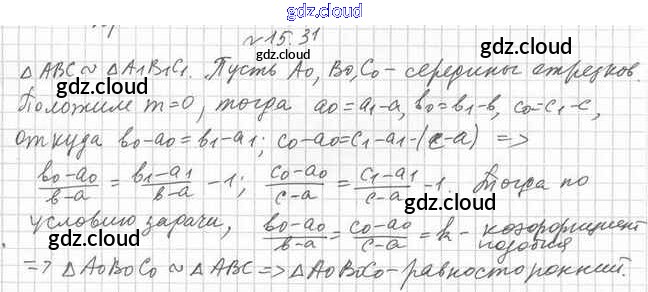 gdz.cloud
№15.31
gdz.cloud gdz.cloud
△ABC ~ △A₁B₁C₁. Пусть A₀, B₀, C₀ - середины отрезков.
gdz.cloud gdz.cloud
Положим m=0, тогда a₀=a₁-a, b₀=b₁-b, c₀=c₁-c,
gdz.cloud
откуда b₀-a₀=b₁-a₁; c₀-a₀=c₁-a₁-(c-a) =>
gdz.cloud gdz.cloud
(b₀-a₀)/(b-a) = (b₁-a₁)/(b-a) - 1; (c₀-a₀)/(c-a) = (c₁-a₁)/(c-a) - 1. Тогда по
gdz.cloud
условию задачи, (b₀-a₀)/(b-a) = (c₀-a₀)/(c-a) = k - коэффициент
подобия
gdz.cloud gdz.cloud
=> △A₀B₀C₀ ~ △ABC => △A₀B₀C₀ - равносторонний.
gdz.cloud